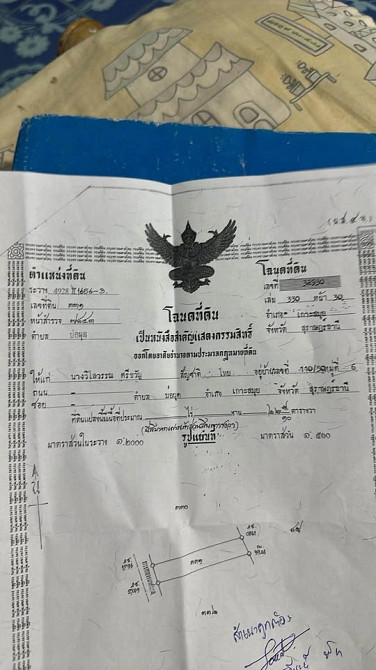 (น.ส.๔ จ.)
ตำแหน่งที่ดิน
ระวาง 4928 II 1656-3
เลขที่ดิน ๓๓๑
หน้าสำรวจ
ตำบล บ่อผุด
โฉนดที่ดิน
เลขที่
เล่ม 330 หน้า 30
อำเภอ เกาะสมุย
จังหวัด สุราษฎร์ธานี
โฉนดที่ดิน
เป็นหนังสือสำคัญแสดงกรรมสิทธิ์
ออกโดยอาศัยอำนาจตามประมวลกฎหมายที่ดิน
ให้แก่ นางวิไลวรรณ ศรีขวัญ สัญชาติ ไทย อยู่บ้านเลขที่ 110/30 หมู่ที่ 6
ถนน - ตำบล บ่อผุด อำเภอ เกาะสมุย จังหวัด สุราษฎร์ธานี
ซอย -
ที่ดินแปลงนี้มีเนื้อที่ประมาณ - ไร่ - งาน ตารางวา
รูปแผนที่
มาตราส่วนในระวาง ๑:๒๐๐๐
มาตราส่วน ๑:๕๐๐
๓๓๐
๓๓๑
๓๓๒
สำเนาถูกต้อง